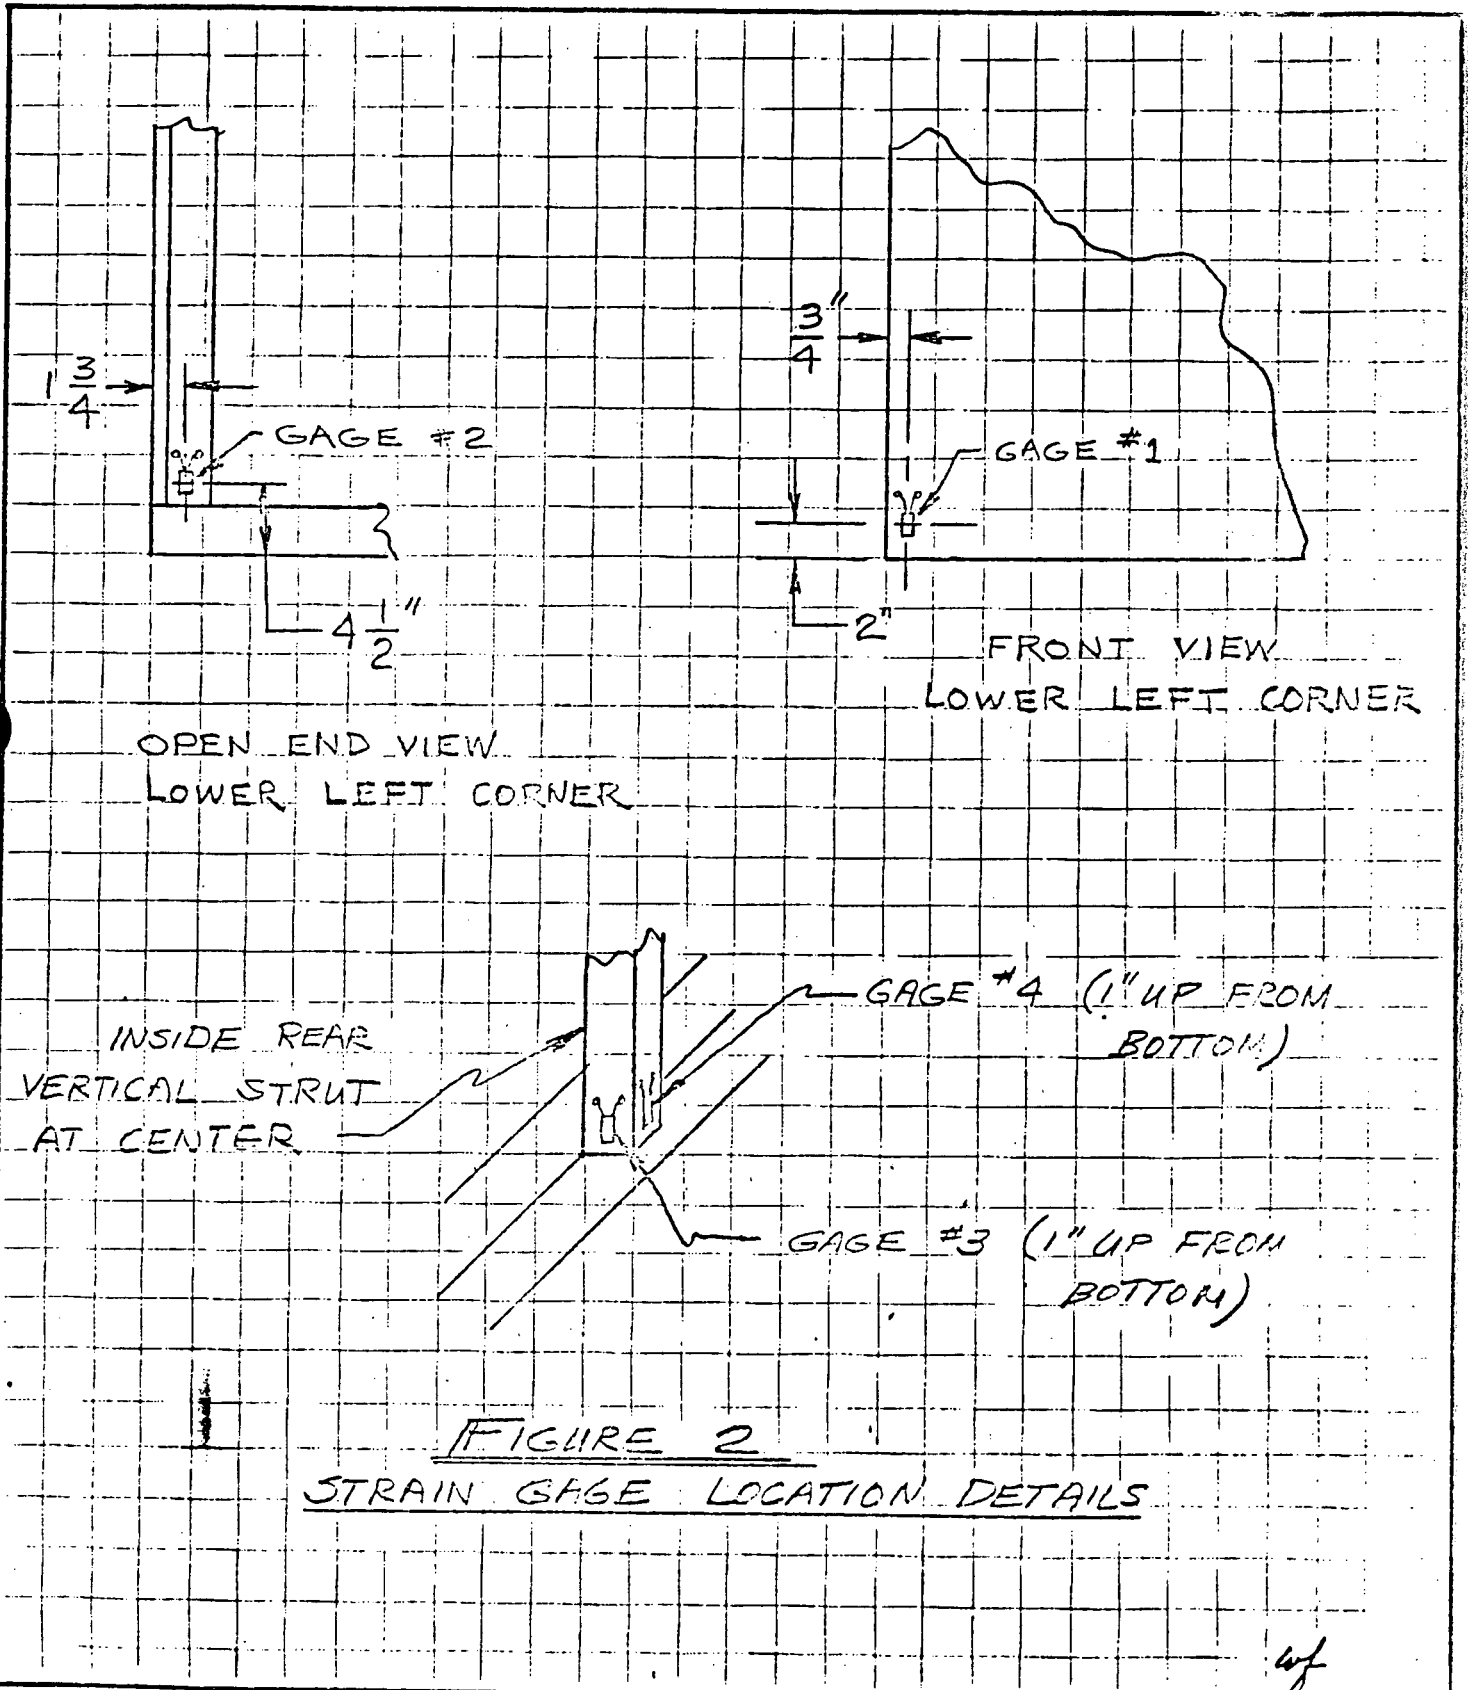 1 3/4
GAGE #2
4 1/2"
OPEN END VIEW
LOWER LEFT CORNER
3/4"
GAGE #1
2"
FRONT VIEW
LOWER LEFT CORNER
INSIDE REAR
VERTICAL STRUT
AT CENTER
GAGE #4 (1" UP FROM
BOTTOM)
GAGE #3 (1" UP FROM
BOTTOM)
FIGURE 2
STRAIN GAGE LOCATION DETAILS